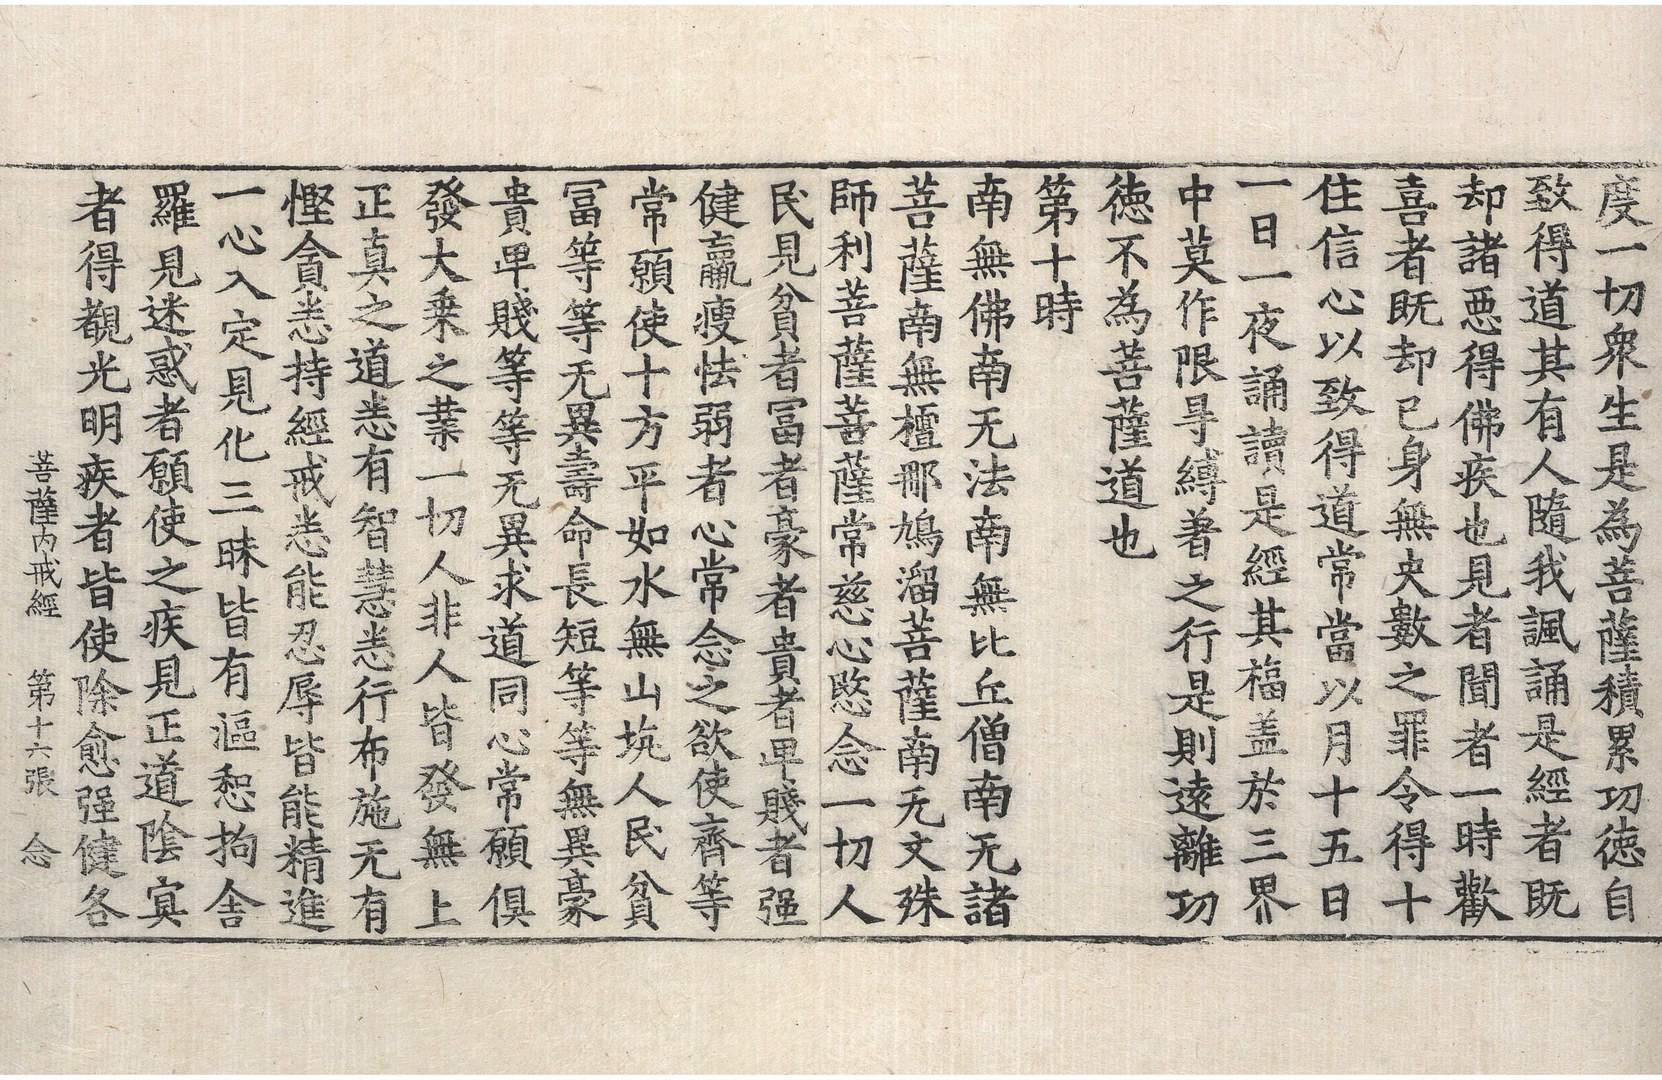 度一切衆生是為菩薩積累功徳自
致得道其有人隨我諷誦是經者既
却諸惡得佛疾也見者聞者一時歡
喜者既却已身無央數之罪令得十
住信心以致得道常當以月十五日
一日一夜誦讀是經其福盖於三界
中莫作限㝵縛著之行是則遠離功
徳不為菩薩道也
第十時
南無佛南无法南無比丘僧南无諸
菩薩南無檀那鳩溜菩薩南无文殊
師利菩薩菩薩常慈心愍念一切人
民見貧者冨者豪者貴者卑賤者强
健羸瘦怯弱者心常念之欲使齊等
常願使十方平如水無山坑人民貧
冨等等无異壽命長短等等無異豪
貴卑賤等等无異求道同心常願俱
發大乗之業一切人非人皆發無上
正真之道悉有智慧悉行布施无有
慳貪悉持經戒悉能忍辱皆能精進
一心入定見化三昧皆有漚惒拘舍
羅見迷惑者願使之疾見正道陰㝠
者得覩光明疾者皆使除愈强健各
菩薩内戒經 第十六張 念